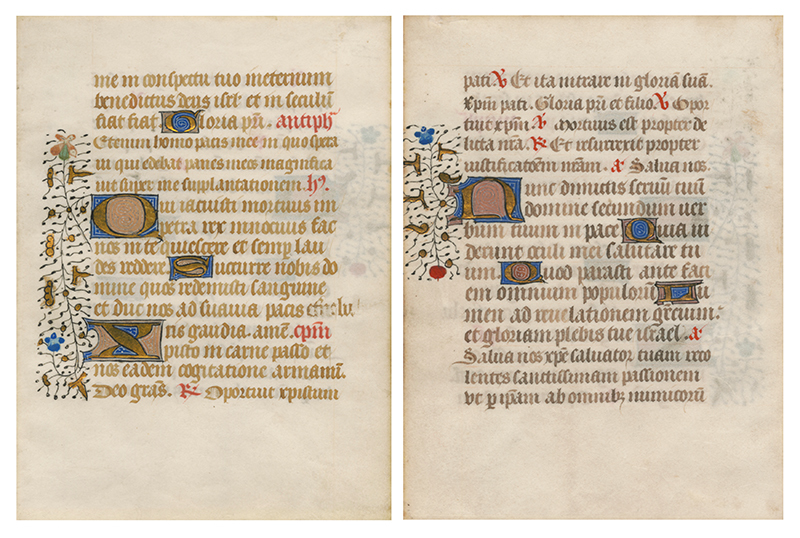 me in conspectu tuo ineternum
benedictus deus isrl et in seculū
fiat fiat Gloria pri. antiph
Etenim homo pacis mee in quo spera
ui qui edebat panes meos magnifica
uit super me supplantationem. hy.
Qui iacuisti mortuus in
petra rex innocuus fac
nos in te quiescere et semp lau
des reddere. Sucurre nobis do
mine quos redemisti sanguine
et duc nos ad suauia pacis
ris gaudia. amē. cpm
Xpisto in carne passo et
nos eadem cogitatione armamī.
Deo gras. R Oportuit xpistum
pati V Et ita intrare in gloriā suā.
xpm pati. Gloria pri et filio. V Opor
tuit xpm A Mortuus est propter de
licta nrā. R Et resurrexit propter
iustificatōem nrām. a Salua nos.
Nunc dimittis seruū tuū
domine secundum uer
bum tuum in pace Quia ui
derunt oculi mei salutare tu
um. Quod parasti ante faci
em omnium populorū Lu
men ad reuelationem gētium:
et gloriam plebis tue israel. a
Salua nos xpe saluator tuam reco
lentes sanctissimam passionem
ut p ipam ab omnibz inimicorū